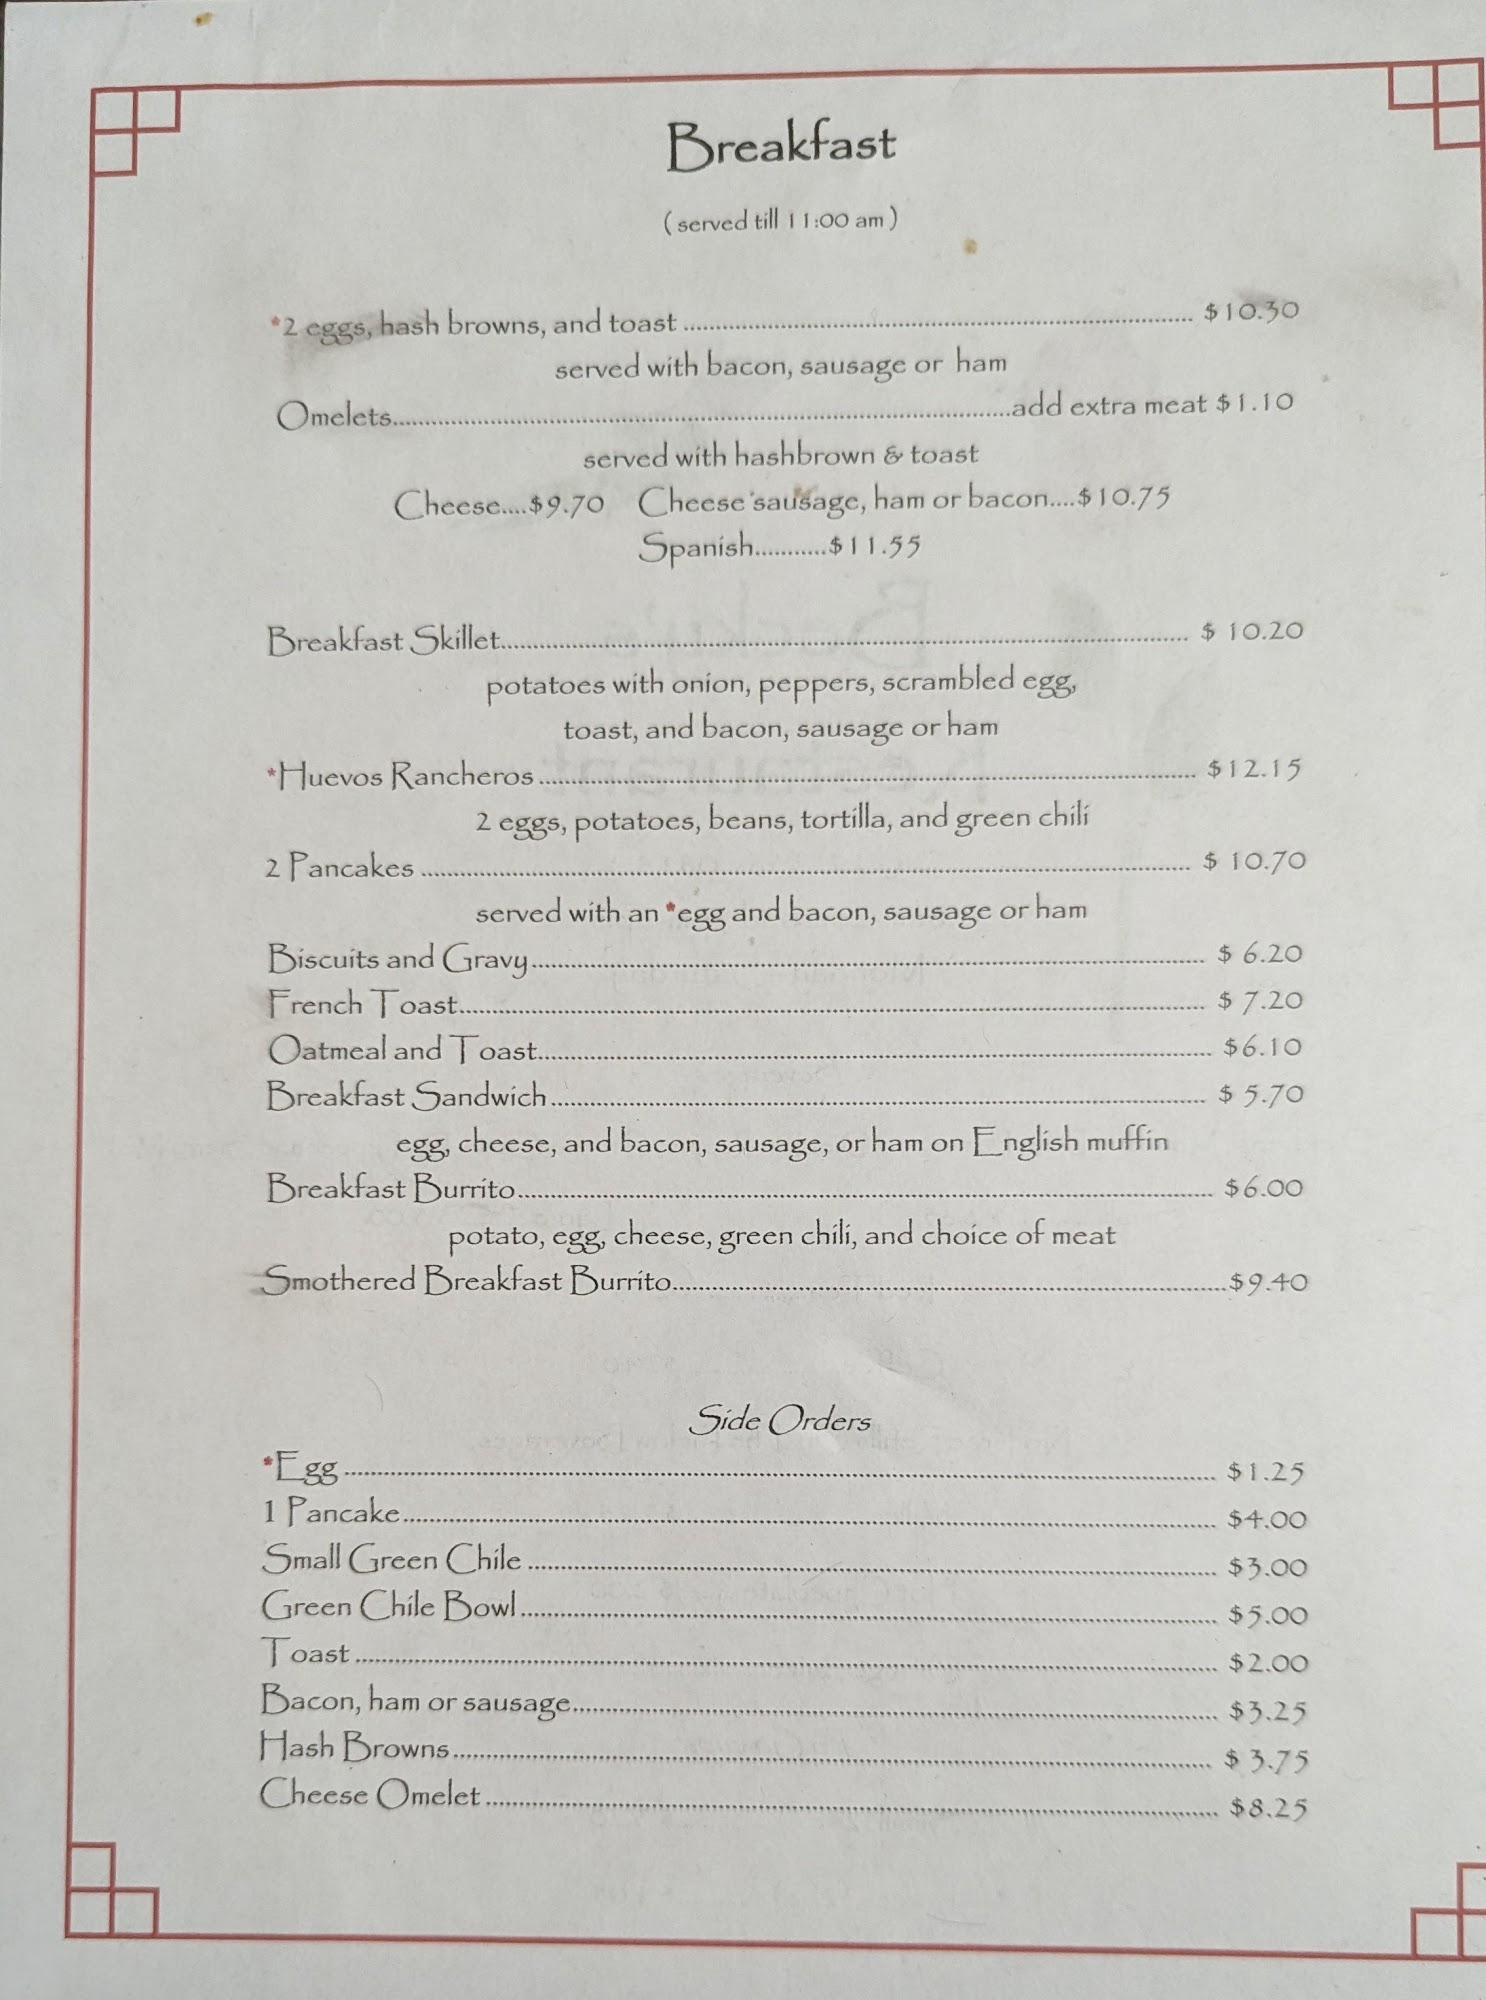 Breakfast
( served till 11:00 am )
*2 eggs, hash browns, and toast ........ $10.30
served with bacon, sausage or ham
Omelets........add extra meat $1.10
served with hashbrown & toast
Cheese....$9.70 Cheese sausage, ham or bacon....$10.75
Spanish...........$11.55
Breakfast Skillet........ $ 10.20
potatoes with onion, peppers, scrambled egg,
toast, and bacon, sausage or ham
*Huevos Rancheros ........ $12.15
2 eggs, potatoes, beans, tortilla, and green chili
2 Pancakes ........ $ 10.70
served with an *egg and bacon, sausage or ham
Biscuits and Gravy........ $ 6.20
French Toast........ $ 7.20
Oatmeal and Toast........ $6.10
Breakfast Sandwich ........ $ 5.70
egg, cheese, and bacon, sausage, or ham on English muffin
Breakfast Burrito........ $6.00
potato, egg, cheese, green chili, and choice of meat
Smothered Breakfast Burrito........$9.40
Side Orders
*Egg ........ $1.25
1 Pancake........ $4.00
Small Green Chile ........ $3.00
Green Chile Bowl ........ $5.00
Toast ........ $2.00
Bacon, ham or sausage........ $3.25
Hash Browns........ $ 3.75
Cheese Omelet ........ $8.25